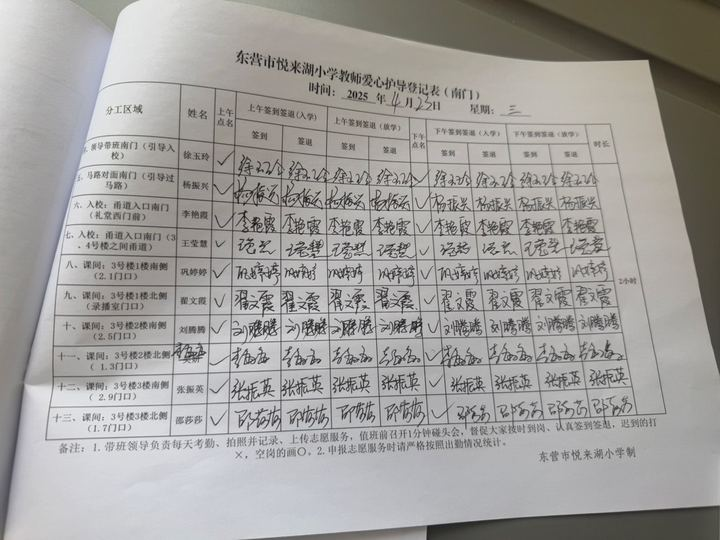 东营市悦来湖小学教师爱心护导登记表（南门）
时间： 2025 年 4 月 23日 星期： 三
分工区域 姓名 上午点名 上午签到签退(入学) 上午签到签退（放学） 下午点名 下午签到签退（入学） 下午签到签退（放学） 时长
签到 签退 签到 签退 签到 签退 签到 签退
领导带班南门（引导入校） 徐玉玲 ✓ 徐玉玲 徐玉玲 徐玉玲 徐玉玲 ✓ 徐玉玲 徐玉玲 徐玉玲 徐玉玲
马路对面南门（引导过马路） 杨振兴 ✓ 杨振兴 杨振兴 杨振兴 杨振兴 ✓ 杨振兴 杨振兴 杨振兴 杨振兴
六、入校：甬道入口南门（礼堂西门前） 李艳霞 ✓ 李艳霞 李艳霞 李艳霞 李艳霞 ✓ 李艳霞 李艳霞 李艳霞 李艳霞
七、入校：甬道入口南门（3、4号楼之间甬道） 王莹慧 ✓ ✓
八、课间：3号楼1楼南侧（2.1门口） 巩婷婷 ✓ 巩婷婷 巩婷婷 巩婷婷 巩婷婷 ✓ 巩婷婷 巩婷婷 巩婷婷 巩婷婷 2小时
九、课间：3号楼1楼北侧（录播室门口） 翟文霞 ✓ 翟文霞 翟文霞 翟文霞 翟文霞 ✓ 翟文霞 翟文霞 翟文霞 翟文霞
十、课间：3号楼2楼南侧（2.5门口） 刘腾腾 ✓ 刘腾腾 刘腾腾 刘腾腾 刘腾腾 ✓ 刘腾腾 刘腾腾 刘腾腾 刘腾腾
十一、课间：3号楼2楼北侧（1.3门口） ✓ ✓
十二、课间：3号楼3楼南侧（2.9门口） 张振英 ✓ 张振英 张振英 张振英 张振英 ✓ 张振英 张振英 张振英 张振英
十三、课间：3号楼3楼北侧（1.7门口） 邵莎莎 ✓ 邵莎莎 邵莎莎 邵莎莎 邵莎莎 ✓ 邵莎莎 邵莎莎 邵莎莎
备注：1.带班领导负责每天考勤、拍照并记录、上传志愿服务，值班前召开1分钟碰头会，督促大家按时到岗、认真签到签退，迟到的打
×，空岗的画〇。2.申报志愿服务时请严格按照出勤情况统计。
东营市悦来湖小学制